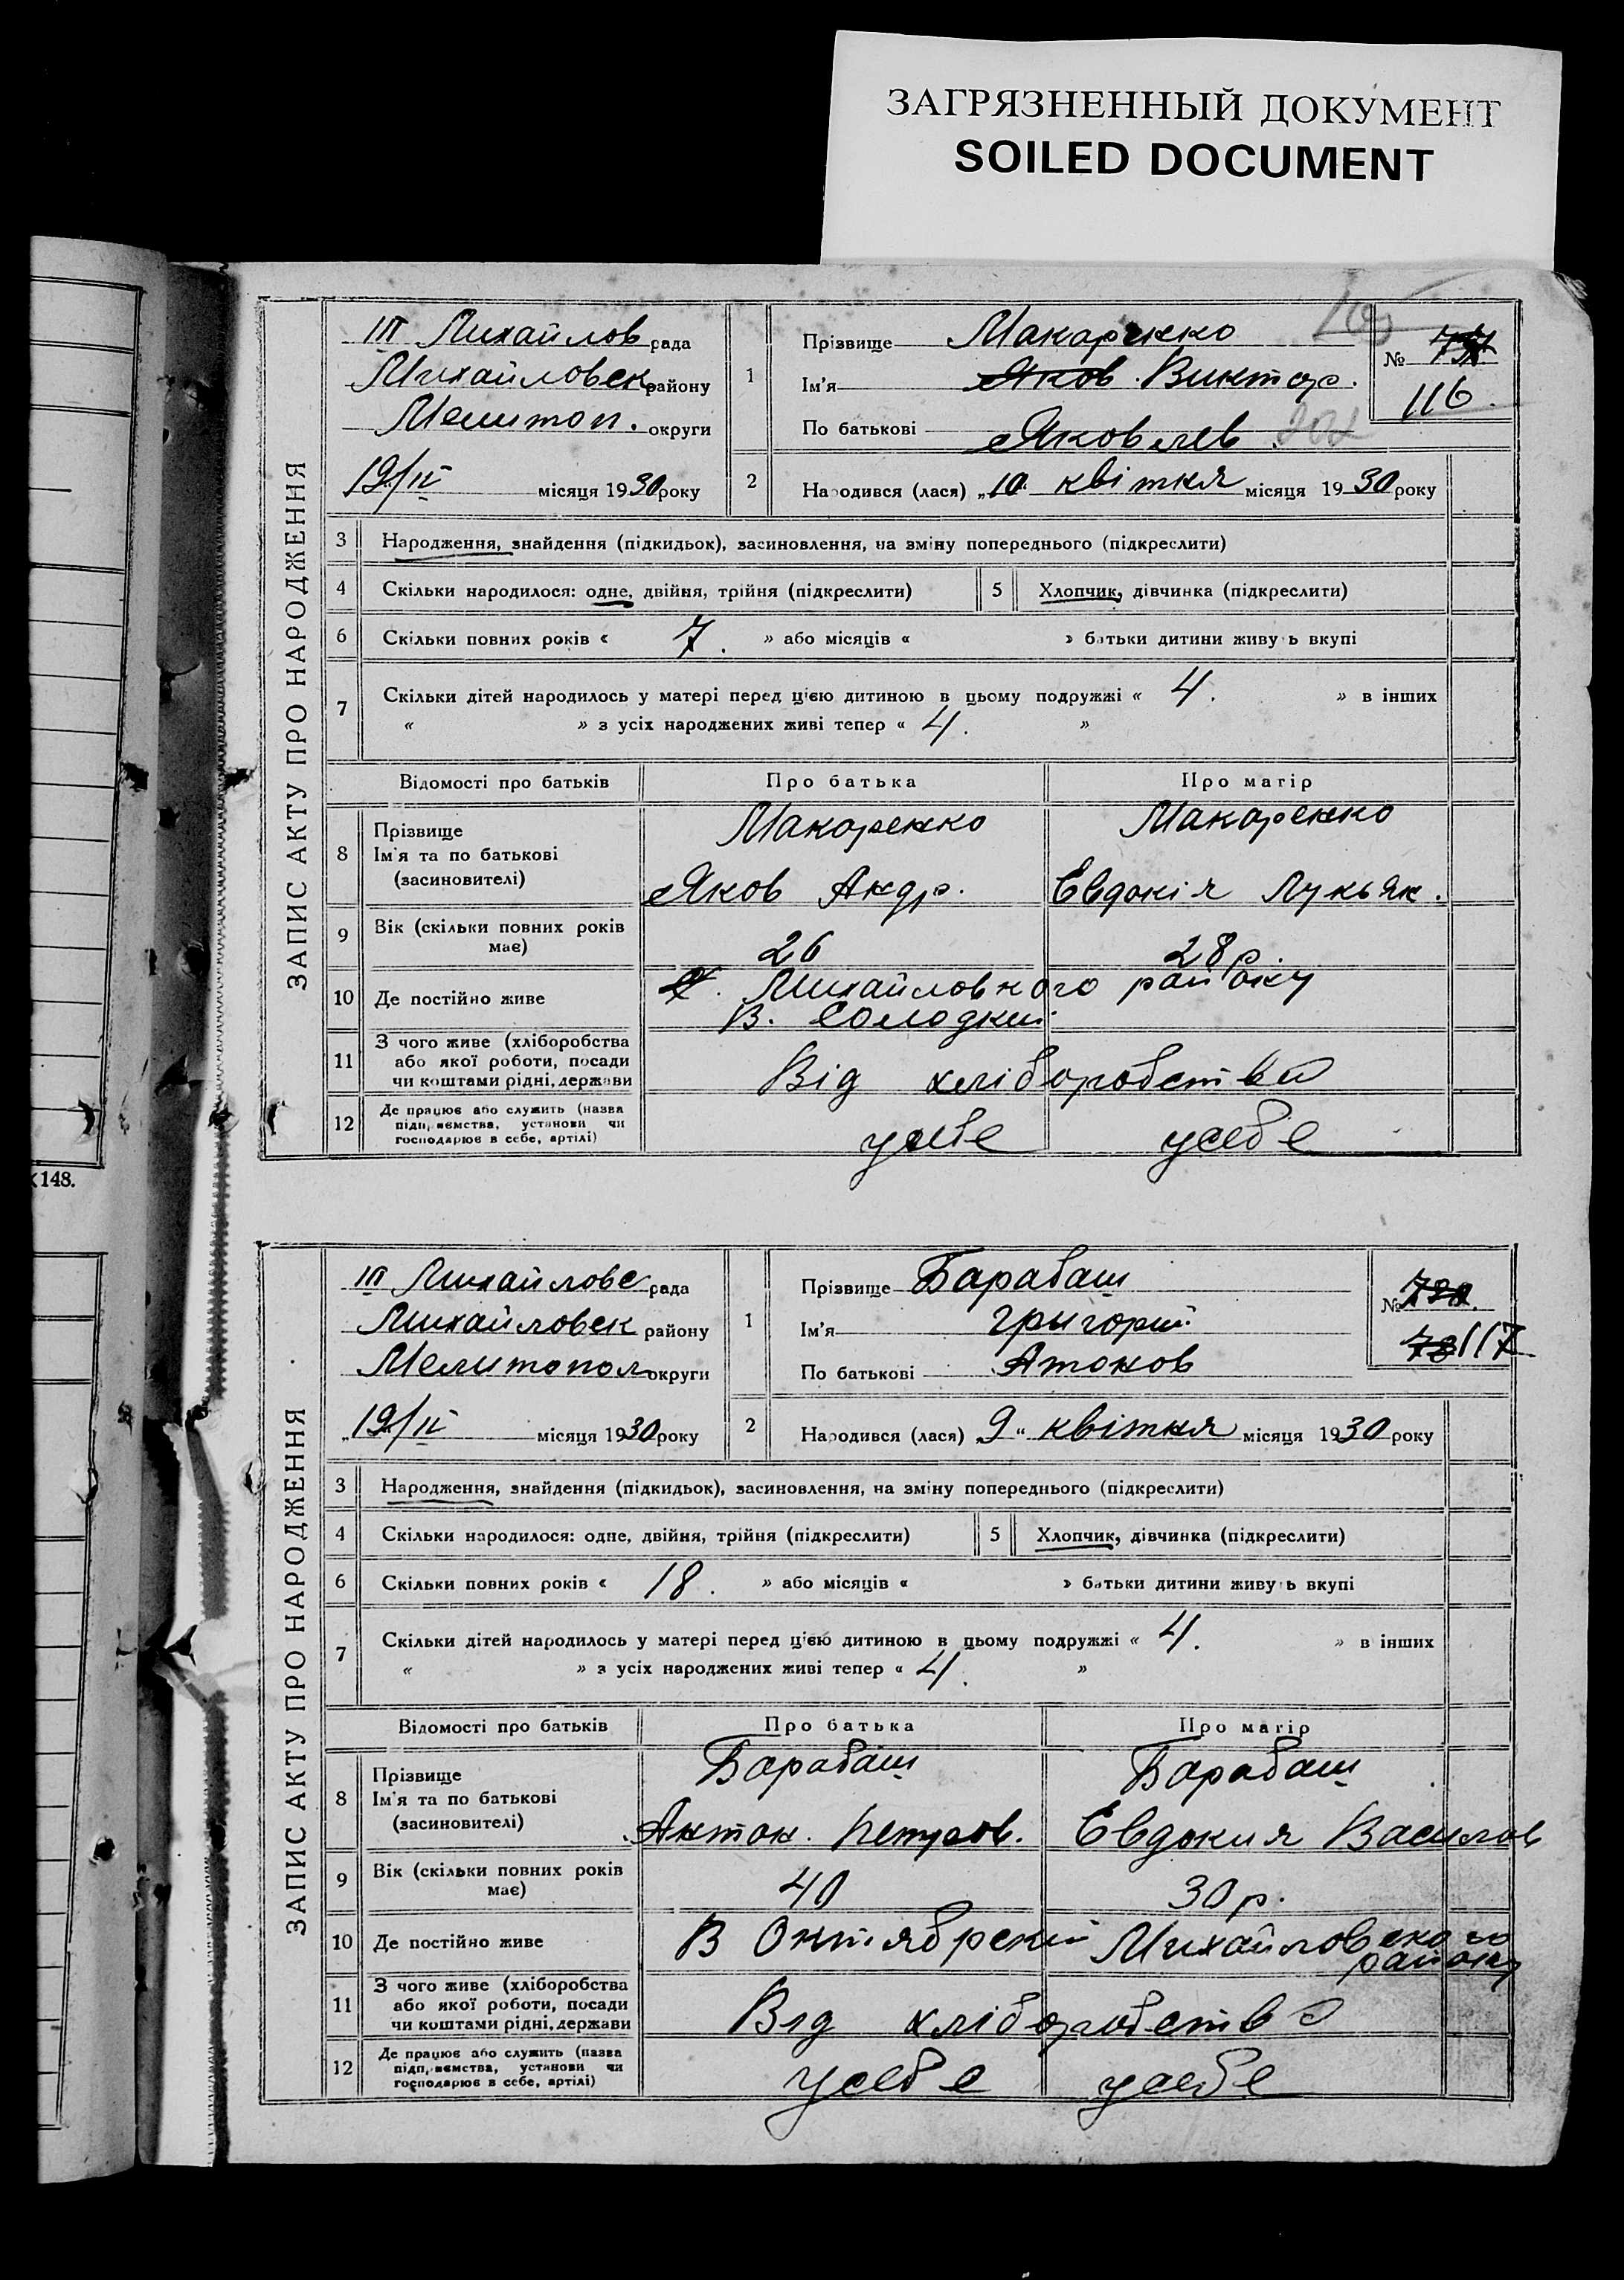 ЗАГРЯЗНЕННЫЙ ДОКУМЕНТ
SOILED DOCUMENT
148.
ЗАПИС АКТУ ПРО НАРОДЖЕННЯ
III Михайлов рада
Михайловск району
Мелитоп. округи
19/IV місяця 1930 року
1 Прізвище Макаренко
Ім'я Яков Виктор.
По батькові Яковлев
№
116
2 Народився (лася) „10" квітня місяця 1930 року
3 Народження, знайдення (підкидьок), засиновлення, на зміну попереднього (підкреслити)
4 Скільки народилося: одне, двійня, трійня (підкреслити) 5 Хлопчик, дівчинка (підкреслити)
6 Скільки повних років « 7. » або місяців « » батьки дитини живуть вкупі
7 Скільки дітей народилось у матері перед цією дитиною в цьому подружжі « 4. » в інших
« » з усіх народжених живі тепер « 4. »
Відомості про батьків Про батька Про матір
8 Прізвище Макаренко Макаренко
Ім'я та по батькові
(засиновителі) Яков Андр. Евдокія Лукьян.
9 Вік (скільки повних років має) 26 28 р.
10 Де постійно живе Михайловного району
В. Солодкий
11 З чого живе (хліборобства
або якої роботи, посади
чи коштами рідні, держави Від хліборобства
12 Де працює або служить (назва
підприємства, установи чи
господарює в себе, артілі) усебе усебе
ЗАПИС АКТУ ПРО НАРОДЖЕННЯ
III Михайловс рада
Михайловск району
Мелитопол округи
„19/IV місяця 1930 року
1 Прізвище Барабаш
Ім'я Григорий
По батькові Атонов
№
78 117
2 Народився (лася) „9" квітня місяця 1930 року
3 Народження, знайдення (підкидьок), засиновлення, на зміну попереднього (підкреслити)
4 Скільки народилося: одне, двійня, трійня (підкреслити) 5 Хлопчик, дівчинка (підкреслити)
6 Скільки повних років « 18. » або місяців « » батьки дитини живуть вкупі
7 Скільки дітей народилось у матері перед цією дитиною в цьому подружжі « 4. » в інших
« » з усіх народжених живі тепер « 4. »
Відомості про батьків Про батька Про матір
8 Прізвище Барабаш Барабаш
Ім'я та по батькові
(засиновителі) Антон. Петров. Евдокия Васлов
9 Вік (скільки повних років має) 40 30 р.
10 Де постійно живе В Октябрский Михайловского
району
11 З чого живе (хліборобства
або якої роботи, посади
чи коштами рідні, держави Від хліборобства
12 Де працює або служить (назва
підприємства, установи чи
господарює в себе, артілі) усебе усебе